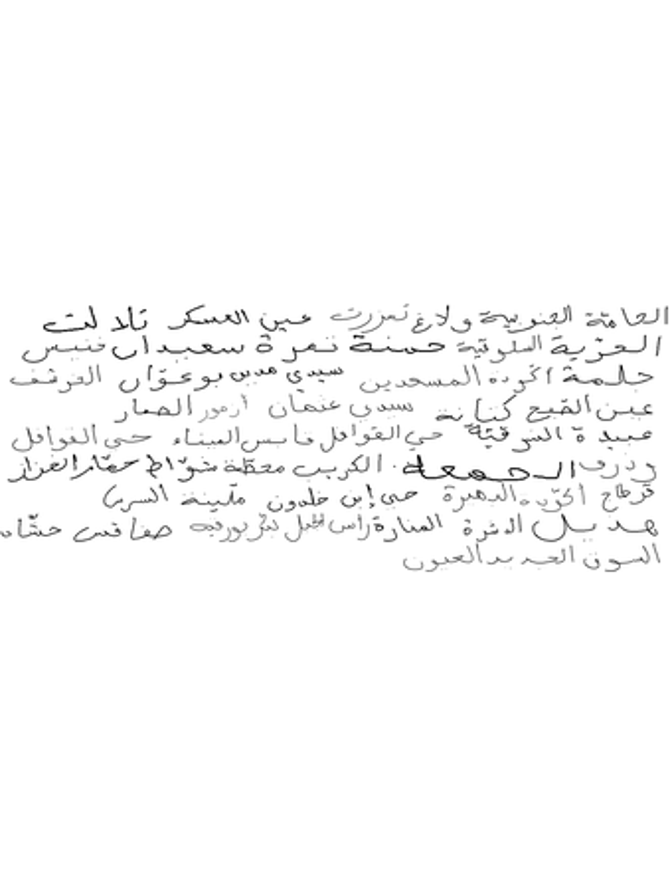 الحامّة الجنوبية ولاغ تمزرت عين العسكر تلالت
العزية السلوقية حسنة نصرة سعيدان فنيس
جلمة أكودة المسعدين سيدي مدين بوعوّان
عين القبح كتانة سيدي عثمان أزمور الصمار
عبيدة الشرقيّة حي القوافل قابس الميناء حي القوافل
وذرف الجمعة الكريب محطّة شوّاط حفّار الغزاز
قرطاج أكودة الدهيرة حي إبن خلدون مليتة السرس
هذيل المنارة رأس الجبل بئر بورقبة صفاقس حشّاد
السوق الجديد العيون